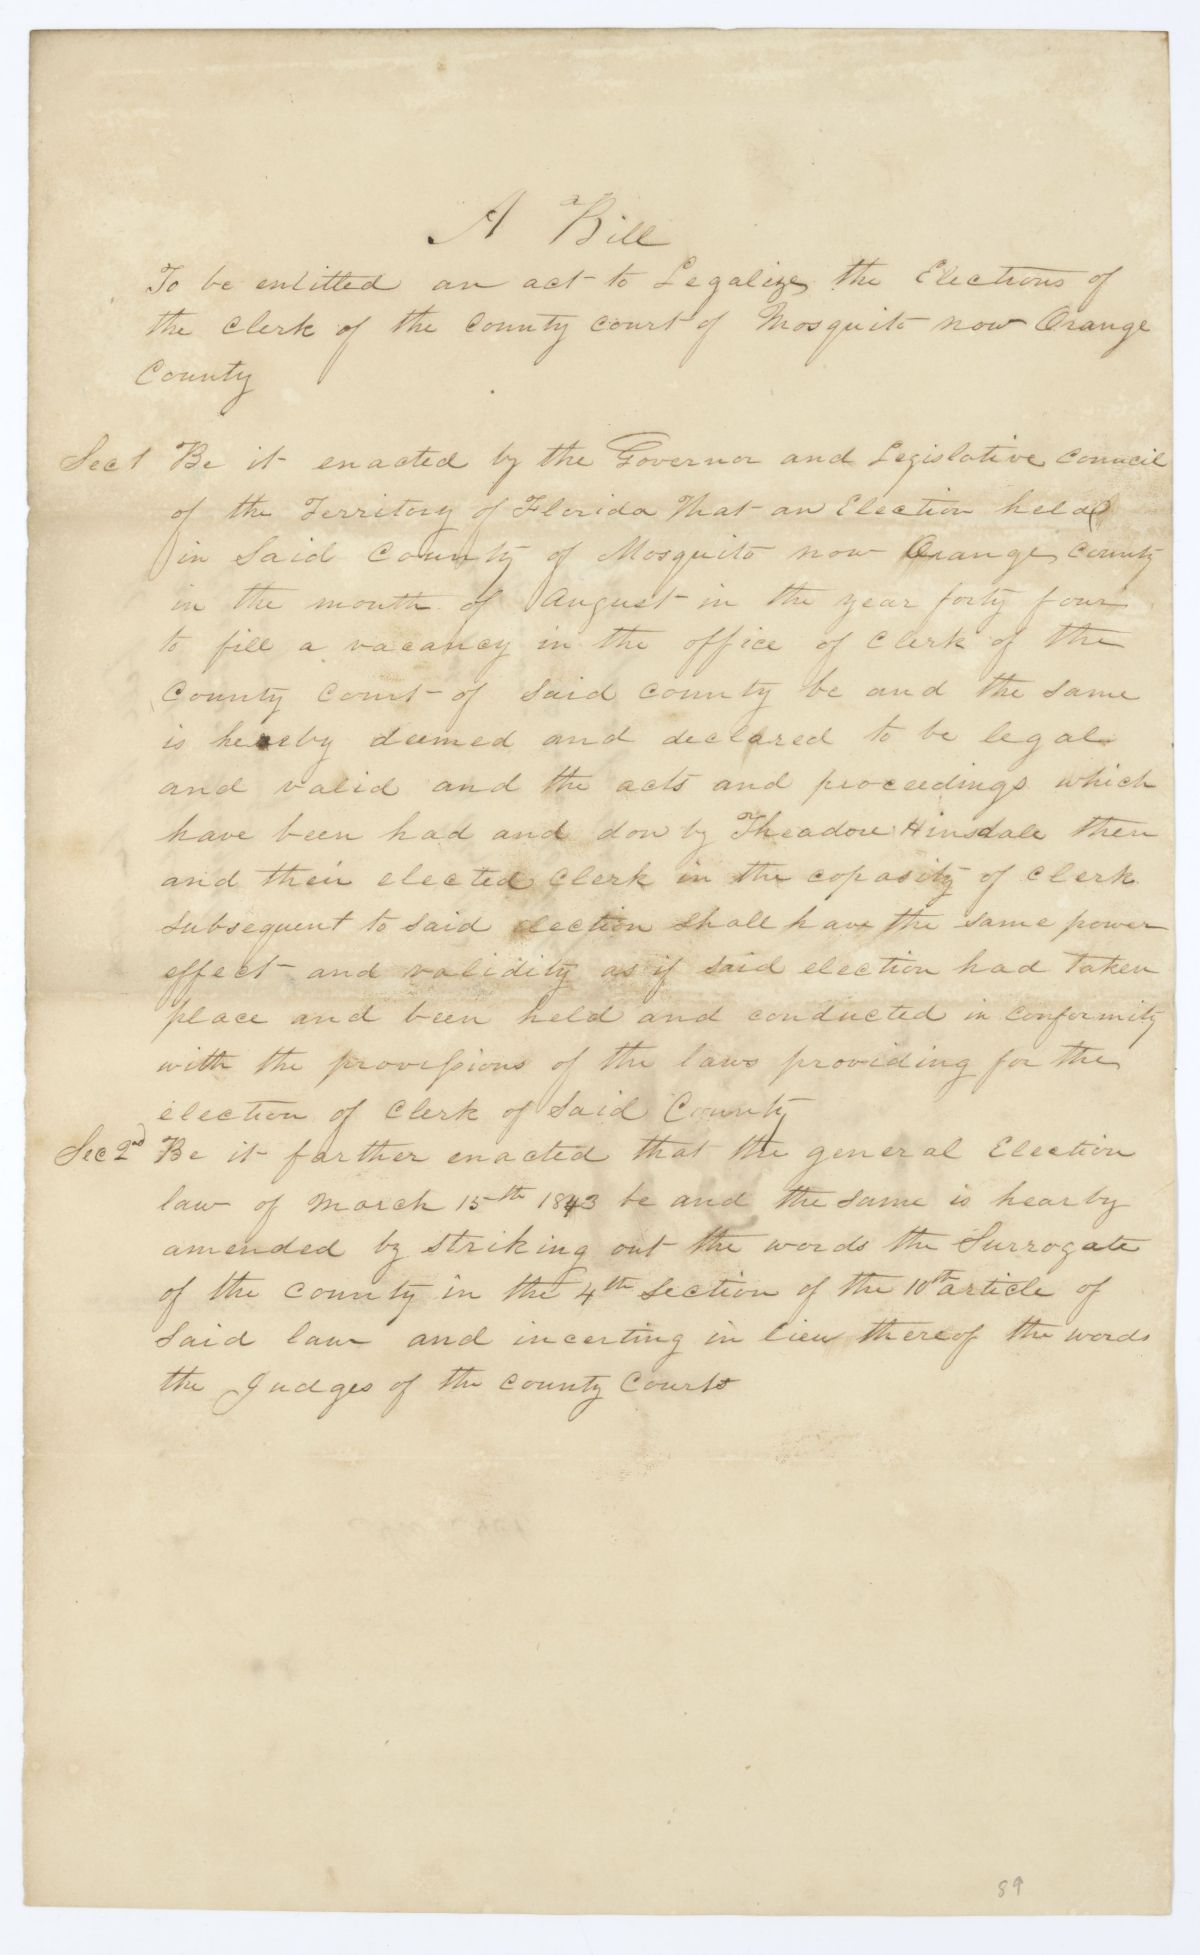 A Bill
To be entitted an act to Legalize the Elections of
the Clerk of the County Court of Mosquito now Orange
County
Sec 1 Be it enacted by the Governor and Legislative Council
of the Territory of Florida That an Election held
in Said County of Mosquito now Orange County
in the month of August in the year forty four
to fill a vacancy in the office of Clerk of the
County Court of Said County be and the same
is hereby deemed and declared to be legal
and valid and the acts and proceedings which
have been had and don by Theadore Hinsdale then
and their elected Clerk in the copasity of Clerk
subsequent to said election shall have the same power
effect and validity as if said election had taken
place and been held and conducted in conformity
with the provissions of the laws providing for the
election of Clerk of Said County
Sec 2nd Be it farther enacted that the general Election
law of March 15th 1843 be and the same is hearby
amended by striking out the words the Surrogate
of the County in the 4th Section of the 10th article of
Said law and incerting in lieu thereof the words
the Judges of the County Courts
89